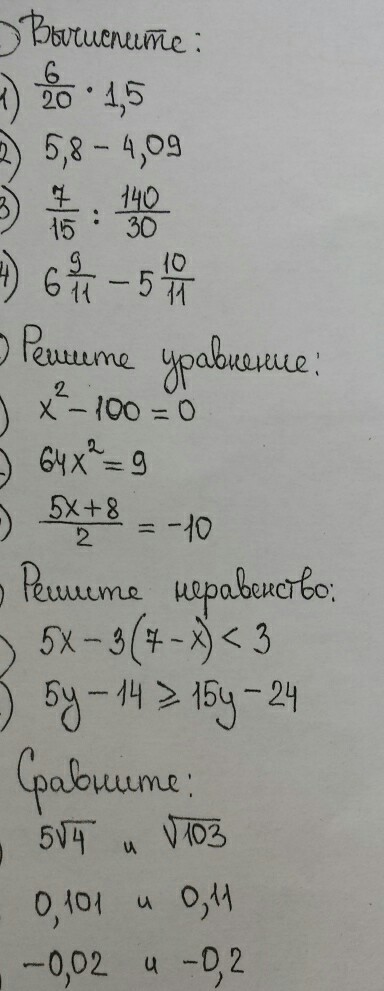 Вычислите:
1) 6/20 · 1,5
2) 5,8 - 4,09
3) 7/15 : 140/30
4) 6 9/11 - 5 10/11
Решите уравнение:
) x² - 100 = 0
64x² = 9
) (5x+8)/2 = -10
) Решите неравенство:
) 5x - 3(7 - x) < 3
) 5y - 14 ⩾ 15y - 24
Сравните:
) 5√4 и √103
0,101 и 0,11
-0,02 и -0,2